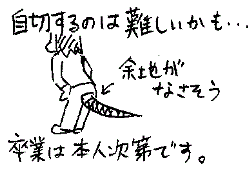 自切するのは難しいかも…
余地が
なさそう
卒業は本人次第です。